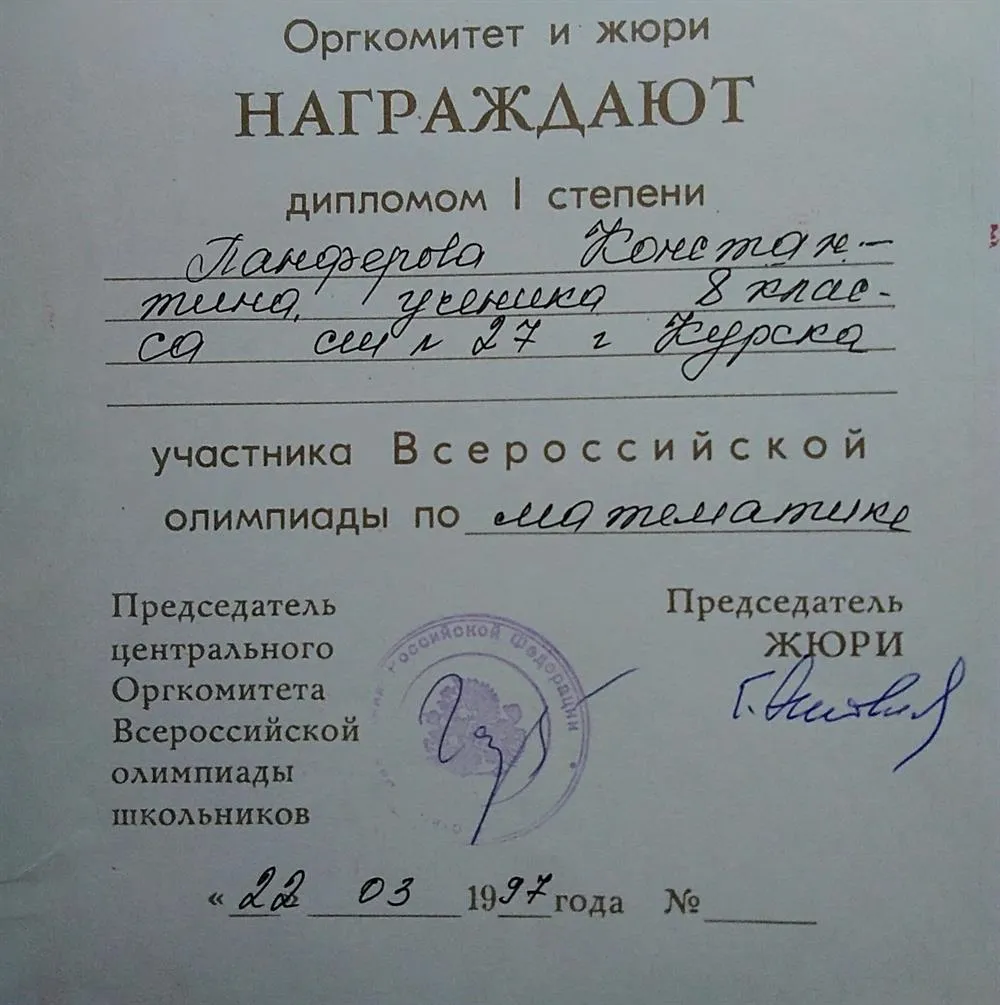 Оргкомитет и жюри
НАГРАЖДАЮТ
дипломом I степени
Панферова Констан-
тина, ученика 8 клас-
са сш № 27 г Курска
участника Всероссийской
олимпиады по математике
Председатель
центрального
Оргкомитета
Всероссийской
олимпиады
школьников
Председатель
ЖЮРИ
Российской Федерации
« 22 03 1997 года №